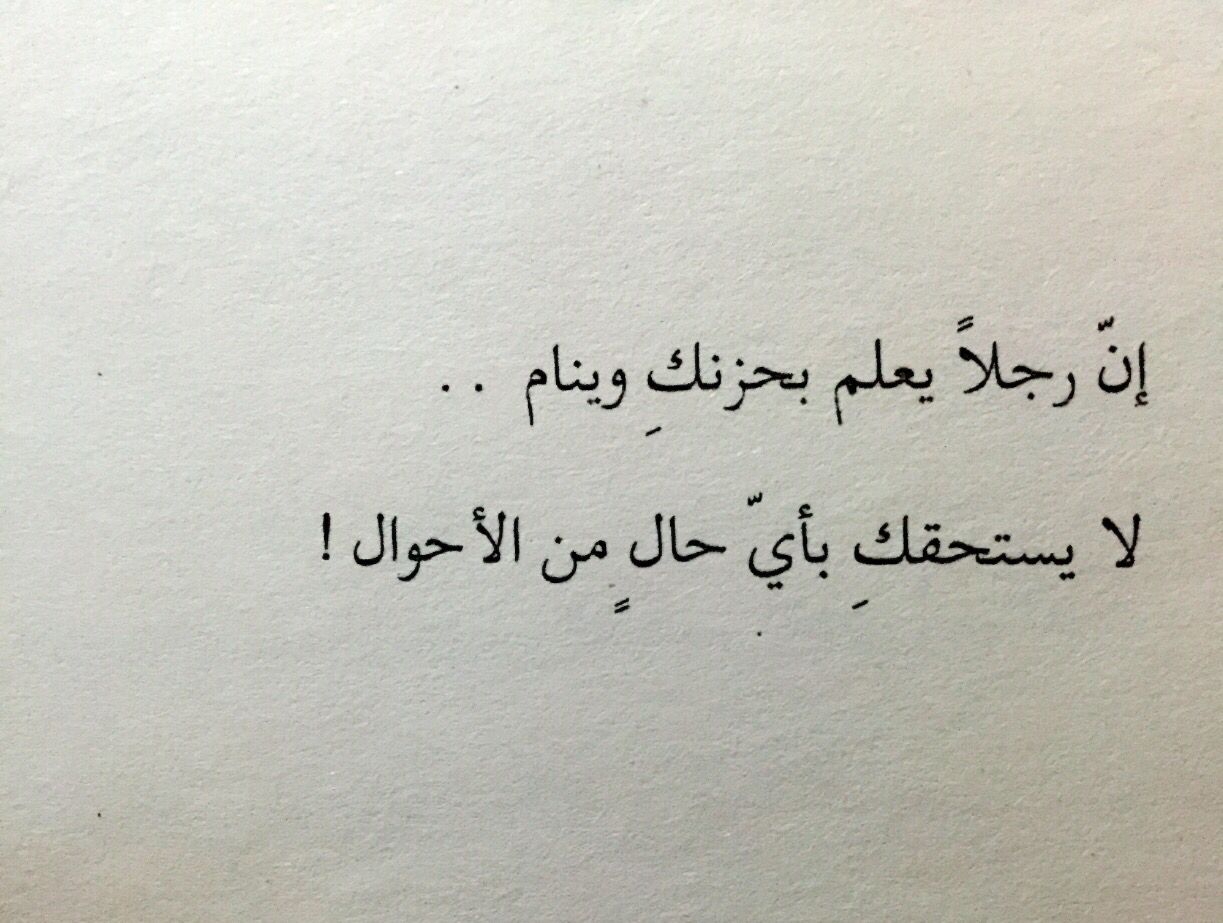 إنّ رجلاً يعلم بحزنكِ وينام . .
لا يستحقكِ بأيّ حالٍ من الأحوال !